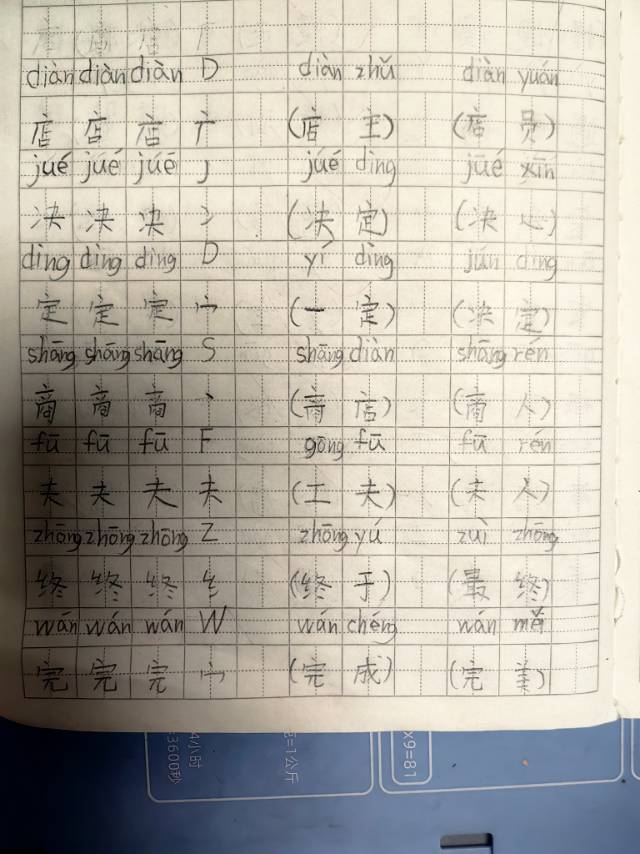 diàn diàn diàn D diàn zhǔ diàn yuán
店 店 店 广 (店 主) (店 员)
jué jué jué J jué dìng jué xīn
决 决 决 冫 (决 定) (决 心)
dìng dìng dìng D yí dìng jué dìng
定 定 定 宀 (一 定) (决 定)
shāng shāng shāng S shāng diàn shāng rén
商 商 商 丶 (商 店) (商 人)
fū fū fū F gōng fū fū rén
夫 夫 夫 夫 (工 夫) (夫 人)
zhōng zhōng zhōng Z zhōng yú zuì zhōng
终 终 终 纟 (终 于) (最 终)
wán wán wán W wán chéng wán měi
完 完 完 宀 (完 成) (完 美)
4小时
3600秒
=1公斤
x9=81